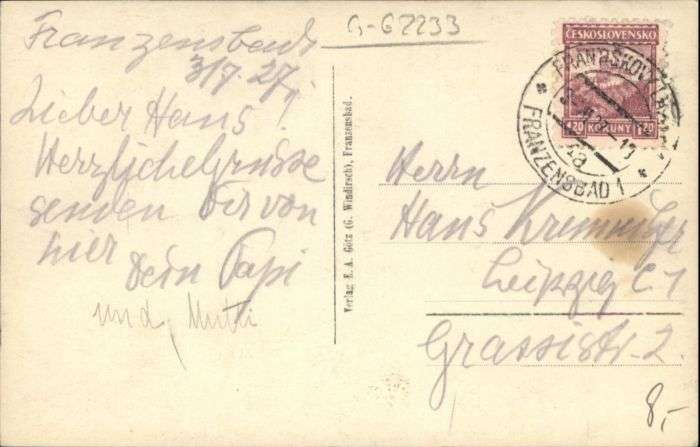 Franzensbad
31/7. 27.
Lieber Hans!
Herzliche Grüsse
senden Dir von
hier
Dein Papi
und Mutti
G-G2233
Verlag E. A. Götz (G. Windirsch), Franzensbad.
ČESKOSLOVENSKO
1·20 KORUNY 1·20
FRANZENSBAD 1
Herrn
Hans
Leipzig C 1
Grassistr. 2.
8,-